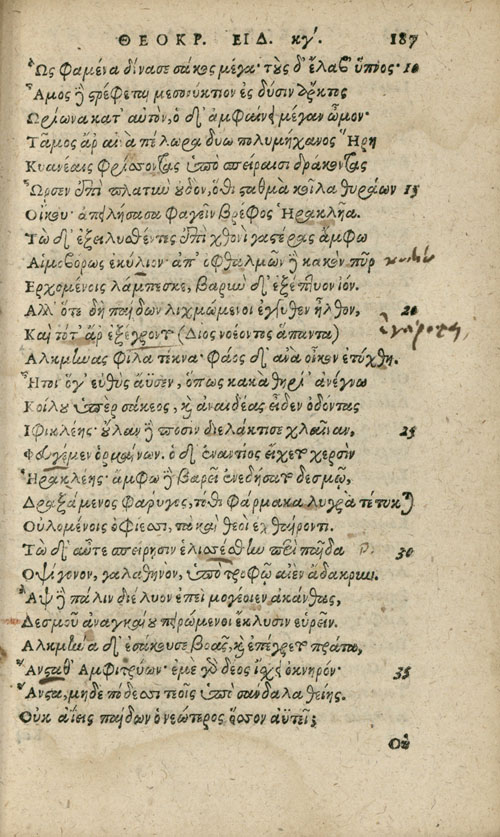 ΘΕΟΚΡ. ΕΙΔ. κγ'. 187
Ὣς φαμένα δίνασε σάκος μέγα· τοὺς δ' ἔλαβ' ὕπνος· 10
Ἆμος δὲ στρέφεται μεσονύκτιον ἐς δύσιν ἄρκτος
Ὠρίωνα κατ' αὐτὸν, ὁ δ' ἀμφαίνει μέγαν ὦμον·
Τᾶμος ἄρ' αἰνὰ πέλωρα δύω πολυμήχανος Ἥρη
Κυανέαις φρίσσοντας ὑπὸ σπείραισι δράκοντας
Ὦρσεν ἐπὶ πλατὺν οὐδὸν, ὅθι σταθμὰ κοῖλα θυράων 15
Οἴκου· ἀπειλήσασα φαγεῖν βρέφος Ἡρακλῆα.
Τὼ δ' ἐξειλυσθέντες ἐπὶ χθονὶ γαστέρας ἄμφω
Αἱμοβόρως ἐκύλιον· ἀπ' ὀφθαλμῶν δὲ κακὸν πῦρ
Ἐρχομένοις λάμπεσκε, βαρὺν δ' ἐξέπτυον ἰόν.
Ἀλλ' ὅτε δὴ παίδων λιχμώμενοι ἐγγύθεν ἦλθον, 20
Καὶ τότ' ἄρ' ἐξέγροντο (Διὸς νοέοντος ἅπαντα)
Ἀλκμήνας φίλα τέκνα· φάος δ' ἀνὰ οἶκον ἐτύχθη.
Ἤτοι ὅγ' εὐθὺς ἄϋσεν, ὅπως κακὰ θηρί' ἀνέγνω
Κοίλου ὑπὲρ σάκεος, καὶ ἀναιδέας εἶδεν ὀδόντας
Ἰφικλέης· οὔλαν δὲ ποσὶν διελάκτισε χλαῖναν,
25
Φευγέμεν ὁρμαίνων. ὁ δ' ἐναντίος εἴχετο χερσὶν
Ἡρακλέης· ἄμφω δὲ βαρεῖ ἐνεδήσατο δεσμῷ,
Δραξάμενος φάρυγος, τόθι φάρμακα λυγρὰ τέτυκται
Οὐλομένοις ὀφίεσσι, τὰ καὶ θεοὶ ἐχθαίροντι.
Τὼ δ' αὖτε σπείρῃσιν ἑλισσέσθην περὶ παῖδα 30
Ὀψίγονον, γαλαθηνὸν, ὑπὸ τροφῷ αἰὲν ἄδακρυν.
Ἂψ δὲ πάλιν διέλυον ἐπεὶ μογέοιεν ἀκάνθας,
Δεσμοῦ ἀναγκαίου πειρώμενοι ἔκλυσιν εὑρεῖν.
Ἀλκμήνα δ' ἐσάκουσε βοᾶς, καὶ ἐπέγρετο πράτα,
Ἄνσταθ' Ἀμφιτρύων· ἐμὲ γὰρ δέος ἴσχει ὀκνηρόν· 35
Ἄνστα, μηδὲ πόδεσσι τεοῖς ὑπὸ σάνδαλα θείης.
Οὐκ ἀΐεις παίδων ὁ νεώτερος ὅσσον ἀϋτεῖ;
Οὐ